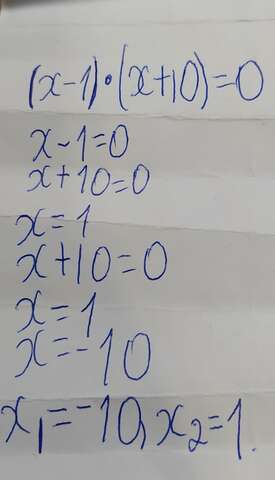 (x-1)·(x+10)=0
x-1=0
x+10=0
x=1
x+10=0
x=1
x=-10
x₁=-10, x₂=1.